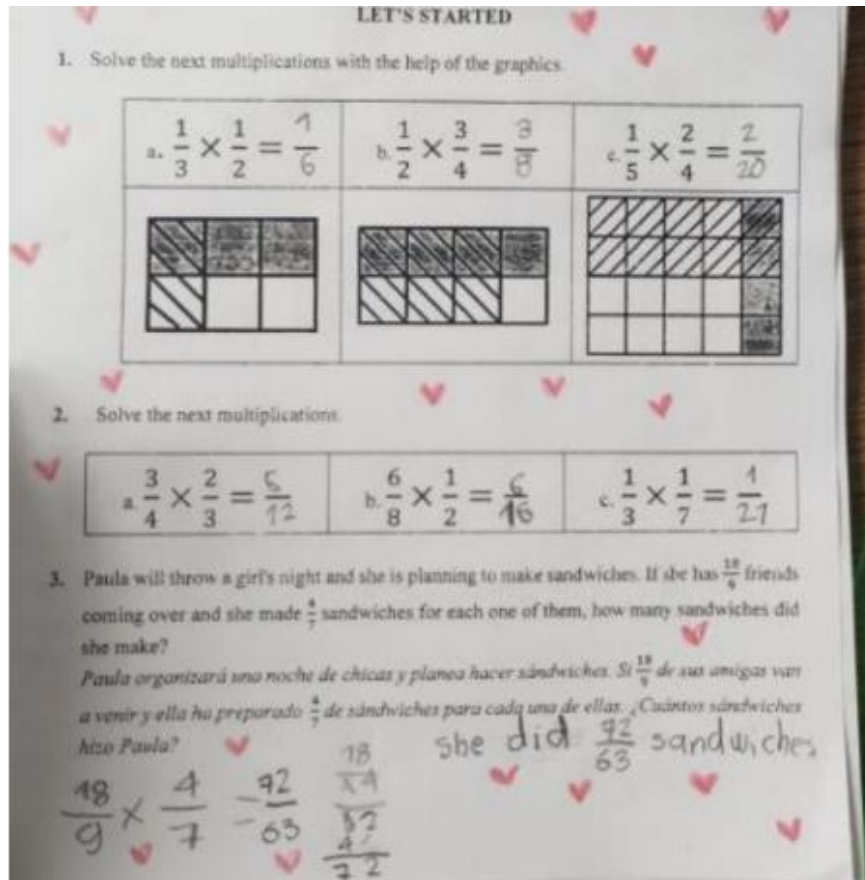 LET'S STARTED
1. Solve the next multiplications with the help of the graphics.
a. 1/3 × 1/2 = 1/6 b. 1/2 × 3/4 = 3/8 c. 1/5 × 2/4 = 2/20
2. Solve the next multiplications.
a. 3/4 × 2/3 = /12 b. 6/8 × 1/2 = 6/16 c. 1/3 × 1/7 = 1/21
3. Paula will throw a girl's night and she is planning to make sandwiches. If she has 18/9 friends
coming over and she made 4/7 sandwiches for each one of them, how many sandwiches did
she make?
Paula organizará una noche de chicas y planea hacer sándwiches. Si 18/9 de sus amigas van
a venir y ella ha preparado 4/7 de sándwiches para cada una de ellas. ¿Cuántos sándwiches
hizo Paula?
she did 72/63 sandwiches
18/9 × 4/7 = 72/63
18
×4
32
4
72